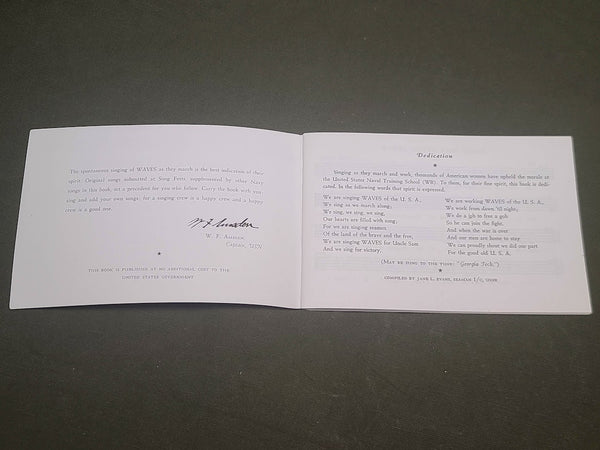 The spontaneous singing of WAVES as they march is the best indication of their
spirit. Original songs submitted at Song Fests, supplemented by other Navy
songs in this book, set a precedent for you who follow. Carry the book with you,
sing and add your own songs; for a singing crew is a happy crew and a happy
crew is a good one.
W. F. Amsden
W. F. Amsden,
Captain, USN
THIS BOOK IS PUBLISHED AT NO ADDITIONAL COST TO THE
UNITED STATES GOVERNMENT
Dedication
Singing as they march and work, thousands of American women have upheld the morale at
the United States Naval Training School (WR). To them, for their fine spirit, this book is dedi-
cated. In the following words that spirit is expressed.
We are singing WAVES of the U. S. A.,
We sing as we march along;
We sing, we sing, we sing,
Our hearts are filled with song;
For we are singing seamen
Of the land of the brave and the free,
We are singing WAVES for Uncle Sam
And we sing for victory.
We are working WAVES of the U. S. A.,
We work from dawn 'til night;
We do a job to free a gob
So he can join the fight.
And when the war is over
And our men are home to stay
We can proudly shout we did our part
For the good old U. S. A.
(May be sung to the tune: "Georgia Tech.")
COMPILED BY JANE L. EVANS, SEAMAN 1/c, USNR